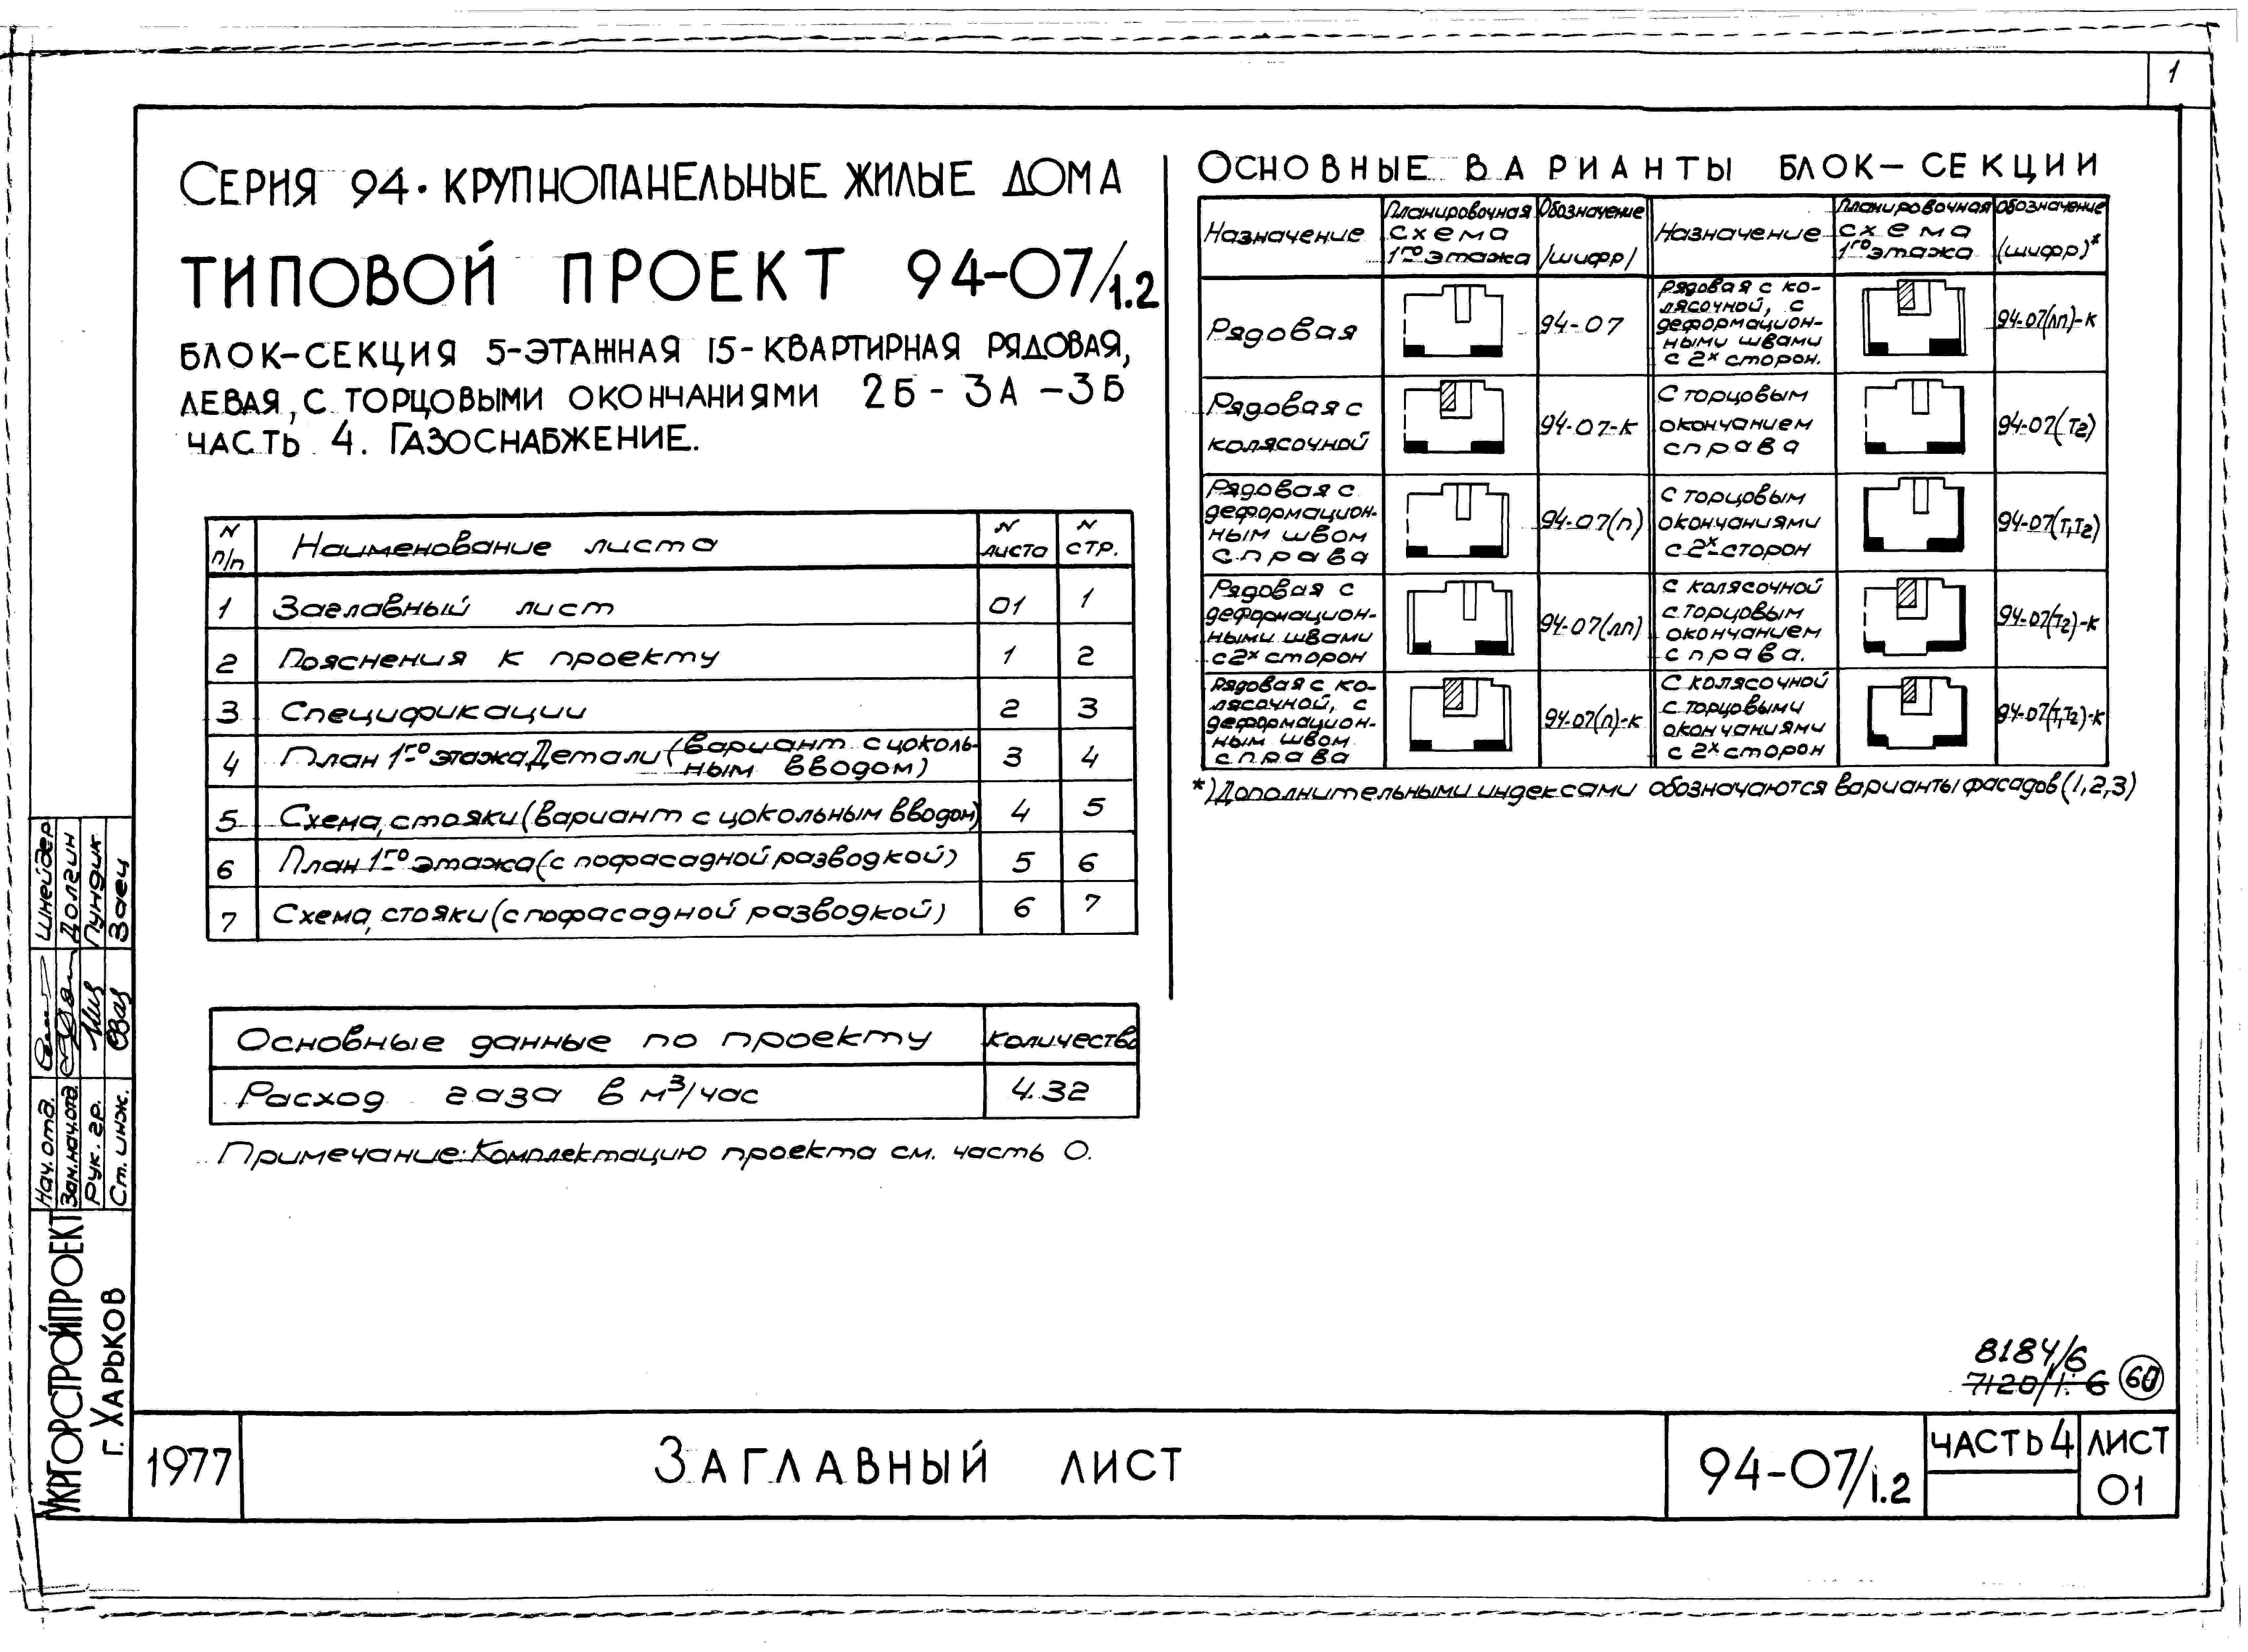 1
Серия 94. крупнопанельные жилые дома
типовой проект 94-07/1.2
блок-секция 5-этажная 15-квартирная рядовая,
левая, с торцовыми окончаниями 2Б - 3А - 3Б
часть 4. Газоснабжение.
N п/п Наименование листа N листа N стр.
1 Заглавный лист 01 1
2 Пояснения к проекту 1 2
3 Спецификации 2 3
4 План 1го этажа. Детали (вариант с цоколь-
ным вводом) 3 4
5 Схема, стояки (вариант с цокольным вводом) 4 5
6 План 1го этажа (с пофасадной разводкой) 5 6
7 Схема, стояки (с пофасадной разводкой) 6 7
Основные данные по проекту количество
Расход газа в м³/час 4.32
Примечание: Комплектацию проекта см. часть 0.
Основные варианты блок-секции
Назначение
Планировочная
схема
1го этажа
Обозначение
/шифр/
Назначение
Планировочная
схема
1го этажа
Обозначение
(шифр)*
Рядовая
94-07
Рядовая с
колясочной
94-07-К
Рядовая с
деформацион-
ным швом
справа
94-07(П)
Рядовая с
деформацион-
ными швами
с 2х сторон
94-07(ЛП)
Рядовая с ко-
лясочной, с
деформацион-
ным швом
справа
94-07(П)-К
Рядовая с ко-
лясочной, с
деформацион-
ными швами
с 2х сторон.
94-07(ЛП)-К
С торцовым
окончанием
справа
94-07(Т2)
С торцовым
окончаниями
с 2х сторон
94-07(Т1Т2)
С колясочной
с торцовым
окончанием
справа.
94-07(Т2)-К
С колясочной
с торцовыми
окончаниями
с 2х сторон
94-07(Т1Т2)-К
*) Дополнительными индексами обозначаются варианты фасадов (1,2,3)
Нач. отд. Шнейдер
Зам. нач. отд. Долгин
Рук. гр. Пундик
Ст. инж. Заец
Укргорстройпроект
г. Харьков
8184/6
7120/1. 6
60
1977
Заглавный лист
94-07/1.2
часть 4
лист
01